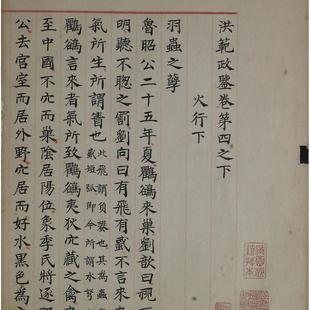 洪範政鑒卷第四之下
火行下
羽蟲之孽
魯昭公二十五年夏鸜鵒來巢劉歆曰視不
明聽不聰之罰劉向曰有飛有蜚不言來者
氣所生所謂眚也此飛謂負蠜也其
蜚短弧即今所謂水弩
鸜鵒言來者氣所致鸜鵒夷狄穴藏之禽來
至中國不穴而巢陰居陽位象季氏將逐昭
公去官室而居外野穴居而好水黑色為主